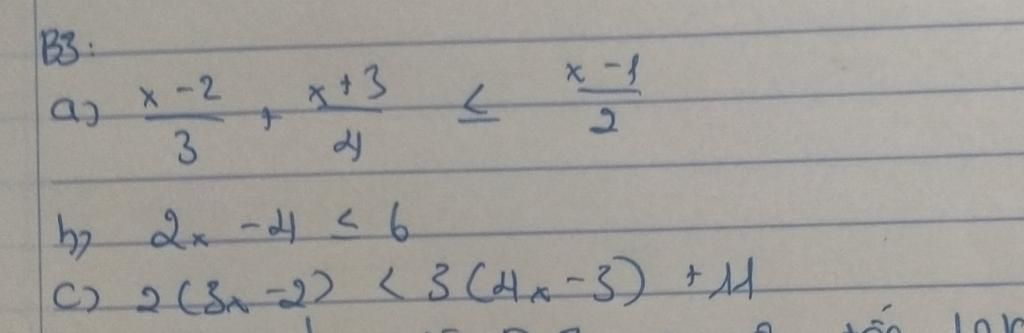 B3:
a) \frac{x-2}{3} + \frac{x+3}{4} ≤ \frac{x-1}{2}
b) 2x - 4 ≤ 6
c) 2(3x-2) < 3(4x-3) + 11